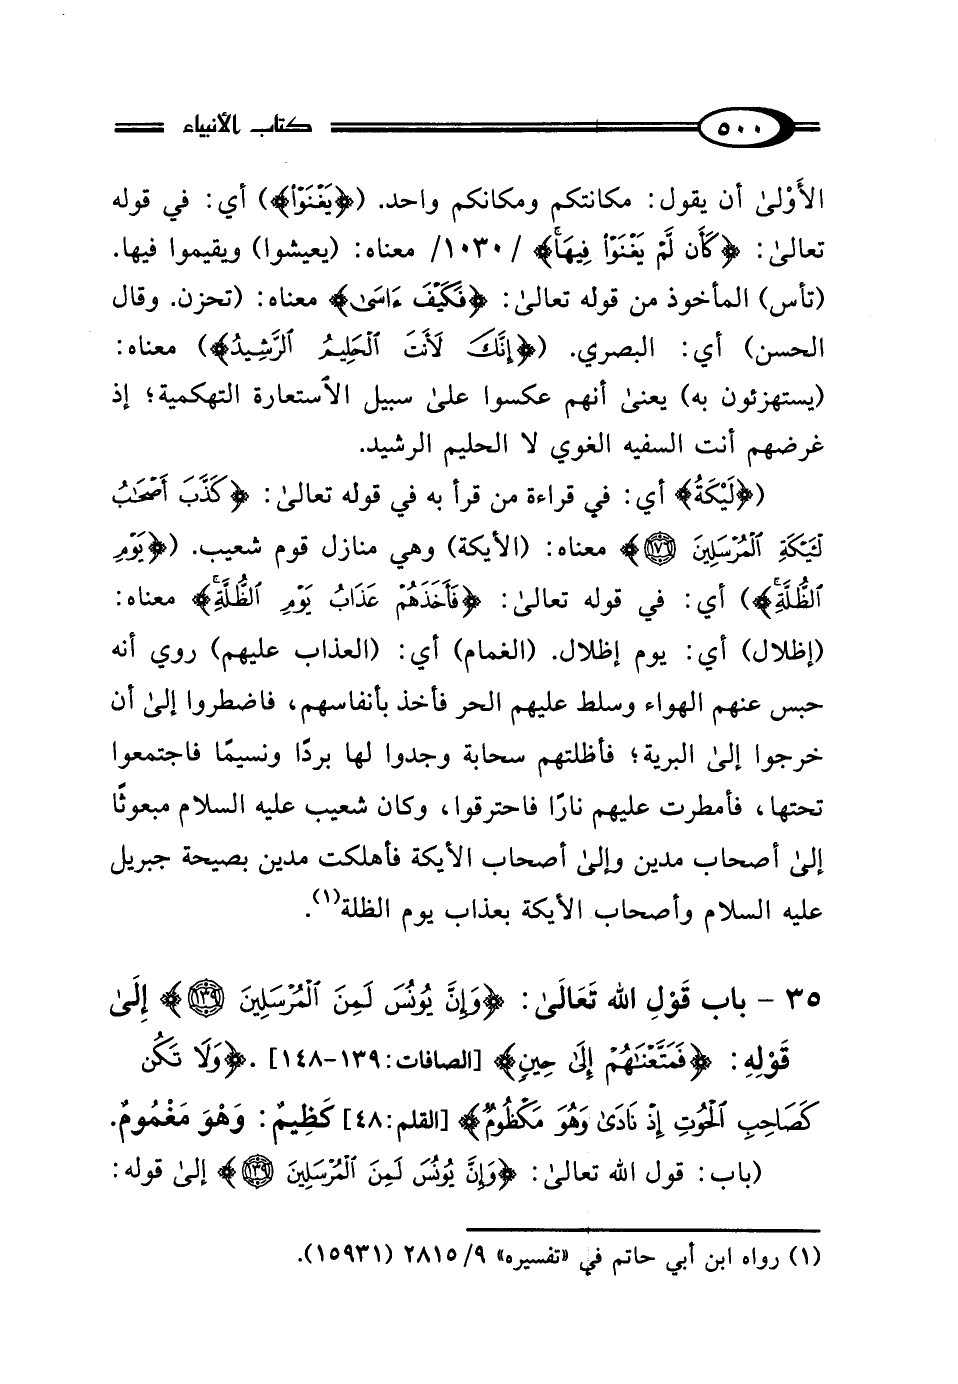 ٥٠٠ كتاب الأنبياء
الأَوْلىٰ أن يقول: مكانتكم ومكانكم واحد. (﴿يَغْنَوْاْ﴾) أي: في قوله
تعالىٰ: ﴿كَأَن لَّمْ يَغْنَوْاْ فِيهَاۚ﴾ /١٠٣٠/ معناه: (يعيشوا) ويقيموا فيها.
(تأس) المأخوذ من قوله تعالىٰ: ﴿فَكَيْفَ ءَاسَىٰ﴾ معناه: (تحزن. وقال
الحسن) أي: البصري. (﴿إِنَّكَ لَأَنتَ ٱلْحَلِيمُ ٱلرَّشِيدُ﴾) معناه:
(يستهزئون به) يعنىٰ أنهم عكسوا علىٰ سبيل الاٌستعارة التهكمية؛ إذ
غرضهم أنت السفيه الغوي لا الحليم الرشيد.
(﴿لَيْكَةُ﴾ أي: في قراءة من قرأ به في قوله تعالىٰ: ﴿كَذَّبَ أَصْحَٰبُ
لْـَٔيْكَةِ ٱلْمُرْسَلِينَ ١٧٦﴾ معناه: (الأيكة) وهي منازل قوم شعيب. (﴿يَوْمِ
ٱلظُّلَّةِۚ﴾) أي: في قوله تعالىٰ: ﴿فَأَخَذَهُمْ عَذَابُ يَوْمِ ٱلظُّلَّةِۚ﴾ معناه:
(إظلال) أي: يوم إظلال. (الغمام) أي: (العذاب عليهم) روي أنه
حبس عنهم الهواء وسلط عليهم الحر فأخذ بأنفاسهم، فاضطروا إلىٰ أن
خرجوا إلىٰ البرية؛ فأظلتهم سحابة وجدوا لها بردًا ونسيمًا فاجتمعوا
تحتها، فأمطرت عليهم نارًا فاحترقوا، وكان شعيب عليه السلام مبعوثًا
إلىٰ أصحاب مدين وإلىٰ أصحاب الأيكة فأهلكت مدين بصيحة جبريل
عليه السلام وأصحاب الأيكة بعذاب يوم الظلة(١).
٣٥ - باب قَوْلِ الله تَعَالَىٰ: ﴿وَإِنَّ يُونُسَ لَمِنَ ٱلْمُرْسَلِينَ ١٣٩﴾ إِلَىٰ
قَوْلِهِ: ﴿فَمَتَّعْنَٰهُمْ إِلَىٰ حِينٍ﴾ [الصافات: ١٣٩-١٤٨]. ﴿وَلَا تَكُن
كَصَاحِبِ ٱلْحُوتِ إِذْ نَادَىٰ وَهُوَ مَكْظُومٌ﴾ [القلم: ٤٨] كَظِيمٌ: وَهْوَ مَغْمُومٌ.
(باب: قول الله تعالىٰ: ﴿وَإِنَّ يُونُسَ لَمِنَ ٱلْمُرْسَلِينَ ١٣٩﴾ إلىٰ قوله:
(١) رواه ابن أبي حاتم في «تفسيره» ٩/ ٢٨١٥ (١٥٩٣١).